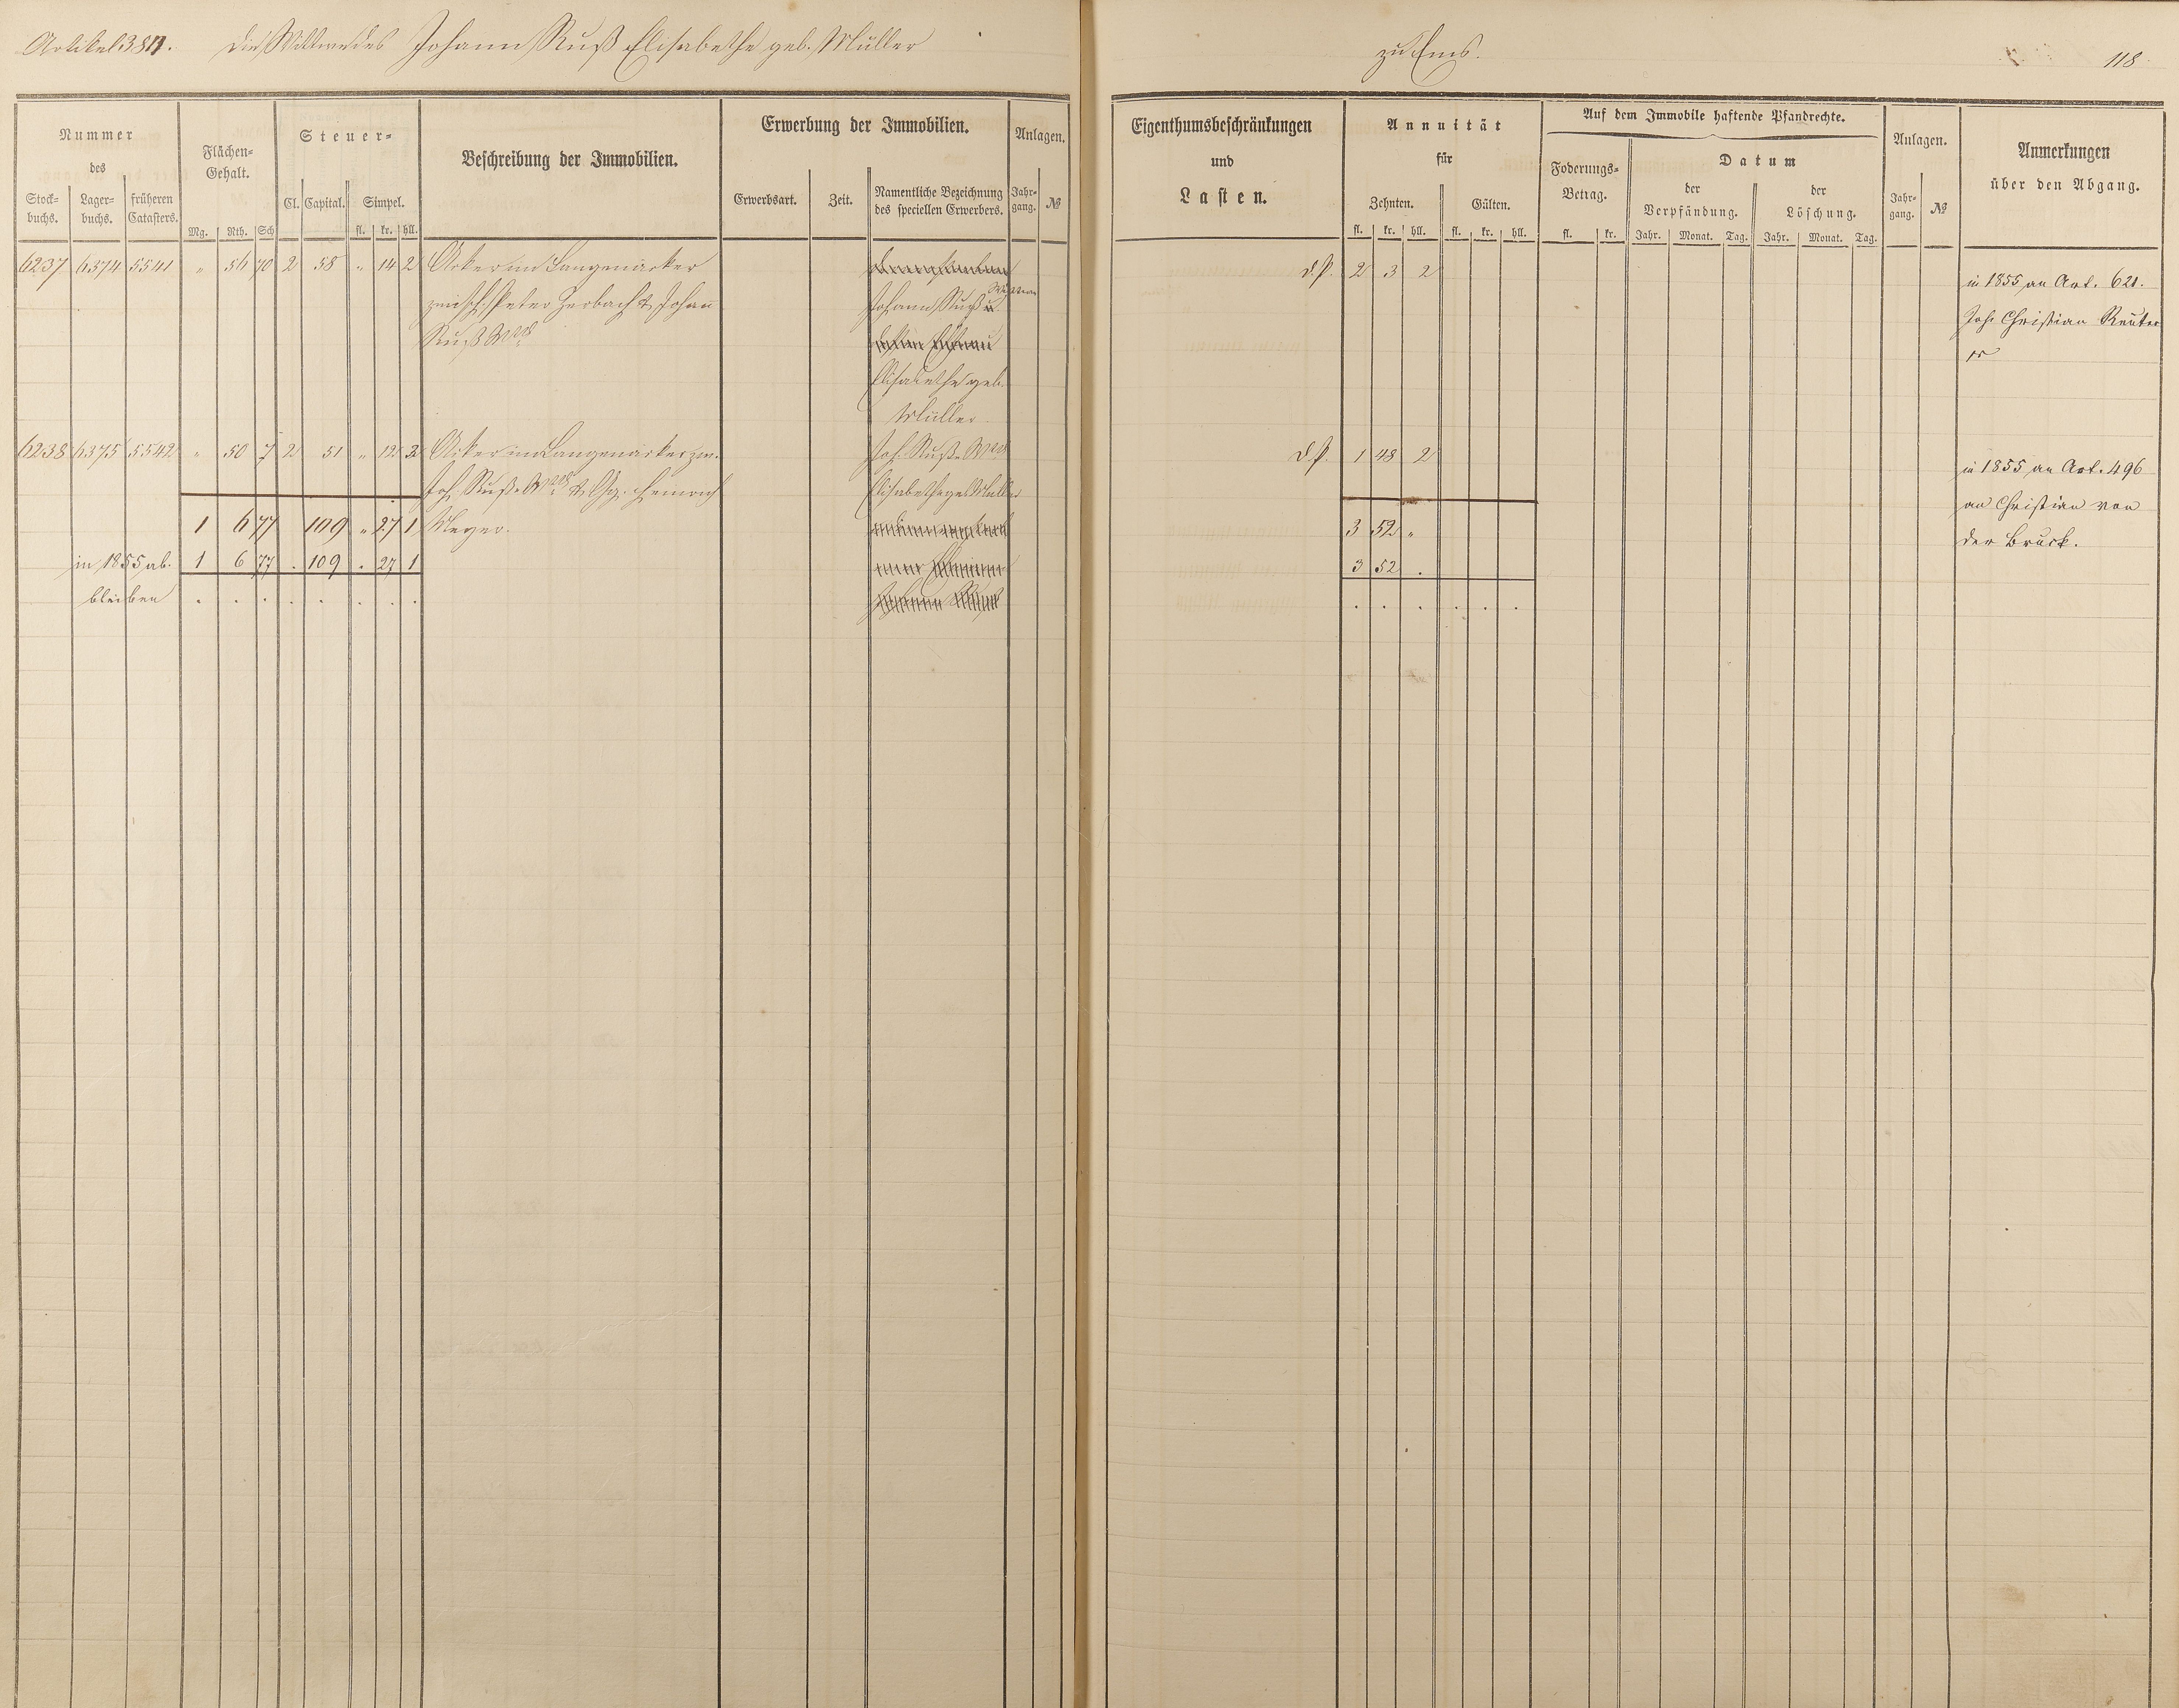 Artikel 381. Die Wittwe des Johann Ruß Elisabethe geb. Müller
zu Ems.
118
Nummer
des
Stock=
buchs.
Lager=
buchs.
früheren
Catasters.
Flächen=
Gehalt.
Mg. Rth. Sch
Steuer=
Cl. Capital. Simpel.
fl. kr. hll.
Beschreibung der Immobilien.
Erwerbung der Immobilien.
Erwerbsart. Zeit.
Namentliche Bezeichnung
des speciellen Erwerbers.
Anlagen.
Jahr=
gang. №
Eigenthumsbeschränkungen
und
Lasten.
Annuität
für
Zehnten. Gülten.
fl. kr. hll. fl. kr. hll.
Auf dem Immobile haftende Pfandrechte.
Foderungs=
Betrag.
fl. kr.
Datum
der
Verpfändung.
der
Löschung.
Jahr. Monat. Tag. Jahr. Monat. Tag.
Anlagen.
Jahr=
gang. №
Anmerkungen
über den Abgang.
6237 6374 5541 " 56 70 2 58 " 14 2 Acker im Langenäcker
zwisch. Peter Herbach & Johan
Ruß Wwe
Johann Ruß Wittwe
Elisabethe geb.
Müller
d.P. 2 3 2
in 1855 an Art. 621.
Joh. Christian Reuter
6238 6375 5542 " 50 7 2 51 " 12 3 Acker im Langenäcker zw.
Joh Ruß Wwe & Chg. Heinrich
Meyer.
Joh. Ruß Wwe
Elisabethe geb Müller
d.P. 1 48 2
in 1855 an Art. 496
an Christian von
der Bruck.
1 6 77 109 " 27 1
3 52 "
in 1855 ab. 1 6 77 . 109 . 27 1
3 52 .
bleiben . . . . . . . .
. . . . . .